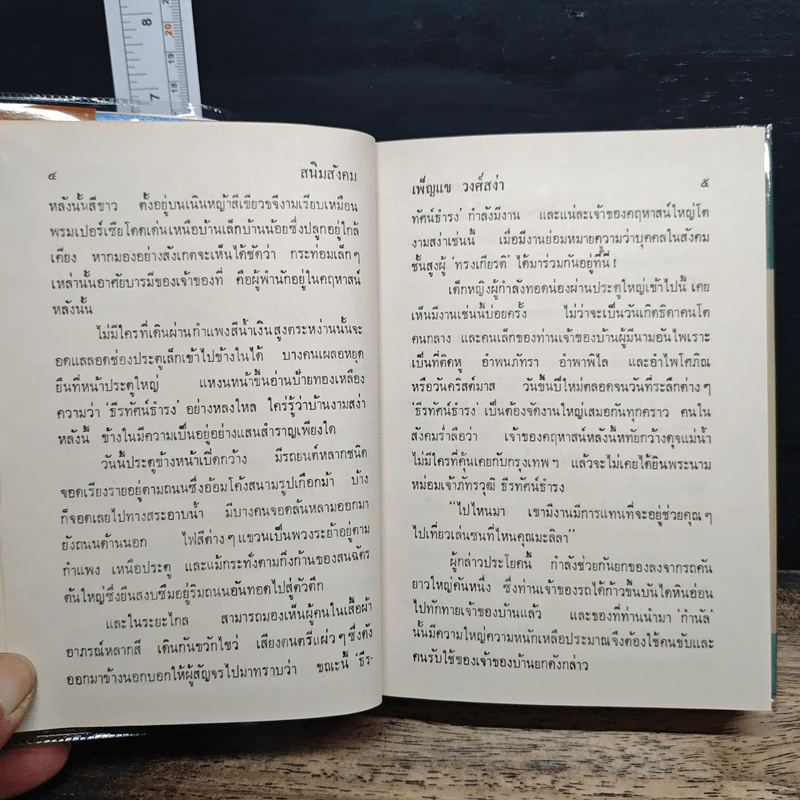 8
20
19
18
7
๔
สนิมสังคม
หลังนั้นสีขาว ตั้งอยู่บนเนินหญ้าสีเขียวขจีงามเรียบเหมือน
พรมเปอร์เซียโดดเด่นเหนือบ้านเล็กบ้านน้อยซึ่งปลูกอยู่ใกล้
เคียง หากมองอย่างสังเกตจะเห็นได้ชัดว่า กระท่อมเล็กๆ
เหล่านั้นอาศัยบารมีของเจ้าของที่ คือผู้พำนักอยู่ในคฤหาสน์
หลังนั้น
ไม่มีใครที่เดินผ่านกำแพงสีน้ำเงินสูงตระหง่านนั้นจะ
อดแลลอดช่องประตูเล็กเข้าไปข้างในได้ บางคนเผลอหยุด
ยืนที่หน้าประตูใหญ่ แหงนหน้าขึ้นอ่านป้ายทองเหลือง
ความว่า 'ธีรทัศน์ธำรง' อย่างหลงใหล ใคร่รู้ว่าบ้านงามสง่า
หลังนี้ ข้างในมีความเป็นอยู่อย่างแสนสำราญเพียงใด
วันนี้ประตูข้างหน้าเปิดกว้าง มีรถยนต์หลากชนิด
จอดเรียงรายอยู่ตามถนนซึ่งอ้อมโค้งสนามรูปเกือกม้า บ้าง
ก็จอดเลยไปทางสระอาบน้ำ มีบางคนจอดล้นหลามออกมา
ยังถนนด้านนอก ไฟสีต่างๆแขวนเป็นพวงระย้าอยู่ตาม
กำแพง เหนือประตู และแม้กระทั่งตามกิ่งก้านของสนฉัตร
ต้นใหญ่ซึ่งยืนสงบซึมอยู่ริมถนนอันทอดไปสู่ตัวตึก
และในระยะไกล สามารถมองเห็นผู้คนในเสื้อผ้า
อาภรณ์หลากสี เดินกันขวักไขว่ เสียงดนตรีแผ่วๆซึ่งดัง
ออกมาข้างนอกบอกให้ผู้สัญจรไปมาทราบว่า ขณะนี้ 'ธีร-
เพ็ญแข วงศ์สง่า
๕
ทัศน์ธำรง' กำลังมีงาน และแน่ละเจ้าของคฤหาสน์ใหญ่โต
งามสง่าเช่นนี้ เมื่อมีงานย่อมหมายความว่าบุคคลในสังคม
ชั้นสูงผู้ 'ทรงเกียรติ' ได้มาร่วมกันอยู่ที่นี่!
เด็กหญิงผู้กำลังทอดน่องผ่านประตูใหญ่เข้าไปนี้ เคย
เห็นมีงานเช่นนี้บ่อยครั้ง ไม่ว่าจะเป็นวันเกิดธิดาคนโต
คนกลาง และคนเล็กของท่านเจ้าของบ้านผู้มีนามอันไพเราะ
เป็นที่ติดหู อำพนภัทรา อำพาพิไล และอำไพโศภิณ
หรือวันคริสต์มาส วันขึ้นปีใหม่ตลอดจนวันที่ระลึกต่างๆ
'ธีรทัศน์ธำรง' เป็นต้องจัดงานใหญ่เสมอกันทุกคราว คนใน
สังคมร่ำลือว่า เจ้าของคฤหาสน์หลังนี้หทัยกว้างดุจแม่น้ำ
ไม่มีใครที่คุ้นเคยกับกรุงเทพฯ แล้วจะไม่เคยได้ยินพระนาม
หม่อมเจ้าภัทรวุฒิ ธีรทัศน์ธำรง
"ไปไหนมา เขามีงานมีการแทนที่จะอยู่ช่วยคุณๆ
ไปเที่ยวเล่นซนที่ไหนคุณมะลิลา"
ผู้กล่าวประโยคนี้ กำลังช่วยกันยกของลงจากรถคัน
ยาวใหญ่คันหนึ่ง ซึ่งท่านเจ้าของรถได้ก้าวขึ้นบันไดหินอ่อน
ไปทักทายเจ้าของบ้านแล้ว และของที่ท่านนำมา 'กำนัล'
นั้นมีความใหญ่ความหนักเหลือประมาณจึงต้องใช้คนขับและ
คนรับใช้ของเจ้าของบ้านยกดังกล่าว